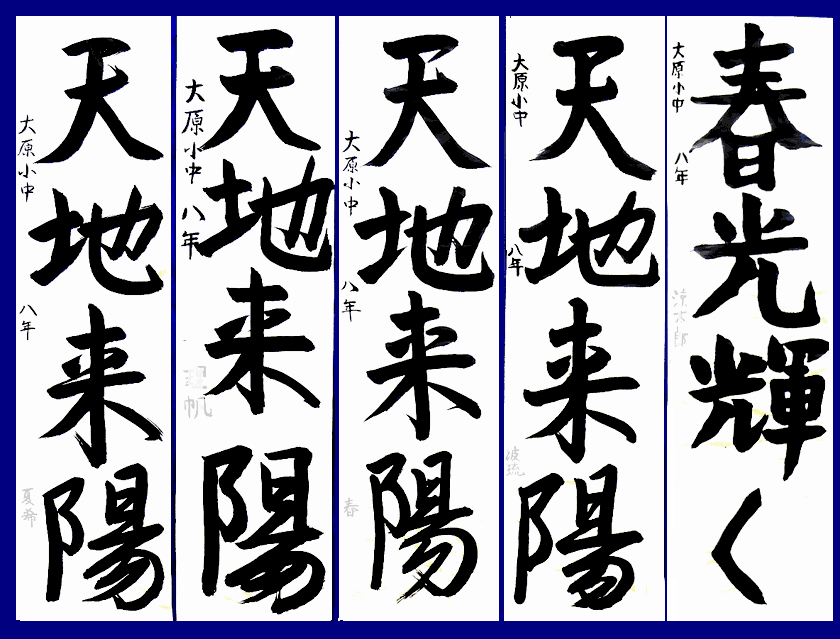 春光輝く
大原小中
八年
涼太郎
天地来陽
大原小中
八年
波琉
天地来陽
大原小中
八年
春
天地来陽
大原小中
八年
理帆
天地来陽
大原小中
八年
夏希